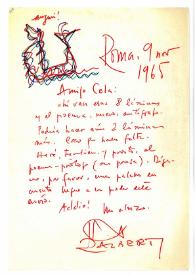 Roma, 9 nov
1965
Amigo Cela:
Ahí van esas 8 láminas
y el poema, nuevo, autógrafo.
Podría hacer aún 2 láminas
más. Creo que hacen falta.
Haré, también, y pronto, el
poema-prólogo (en prosa). Díga-
me, por favor, unas palabras en
cuanto llegue a su poder este
envío.
Addio! Un abrazo.
ALBERTI